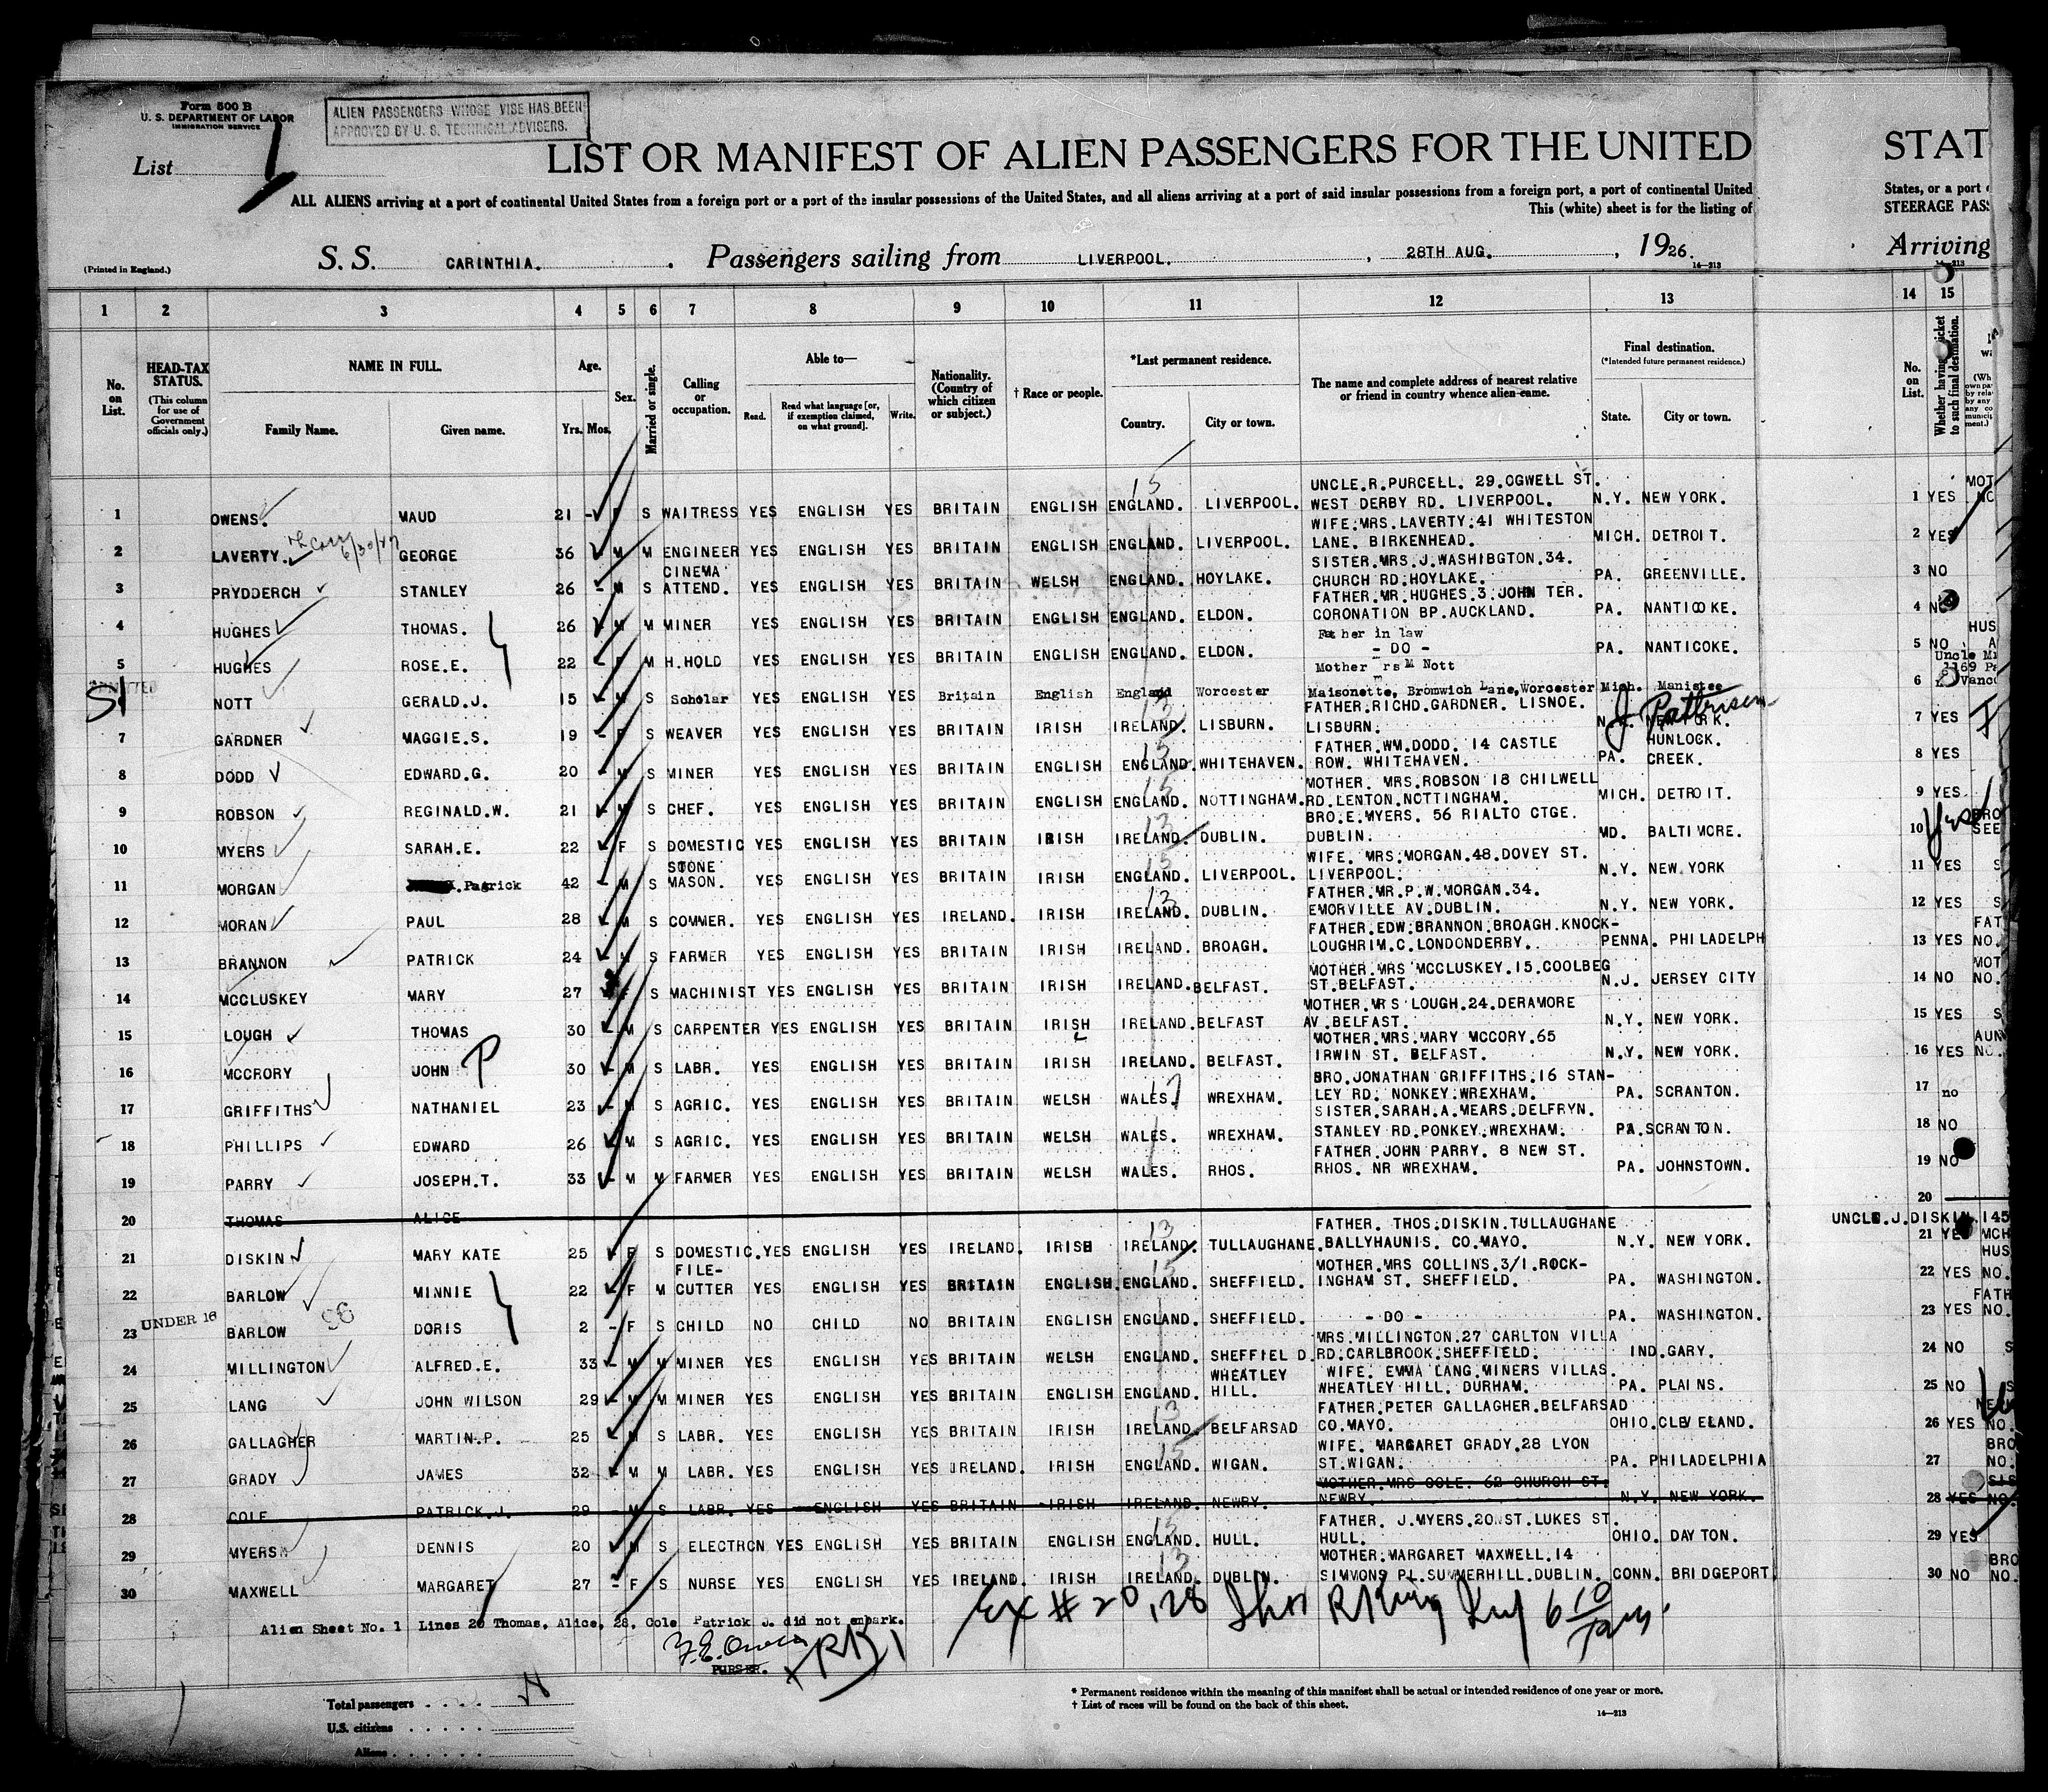 Form 500 B
U. S. DEPARTMENT OF LABOR
IMMIGRATION SERVICE
ALIEN PASSENGERS WHOSE VISE HAS BEEN
APPROVED BY U. S. TECHNICAL ADVISERS.
List 1
LIST OR MANIFEST OF ALIEN PASSENGERS FOR THE UNITED STAT
ALL ALIENS arriving at a port of continental United States from a foreign port or a port of the insular possessions of the United States, and all aliens arriving at a port of said insular possessions from a foreign port, a port of continental United States, or a port
This (white) sheet is for the listing of STEERAGE PAS
(Printed in England.)
S. S. CARINTHIA. Passengers sailing from LIVERPOOL. , 28TH AUG. , 1926. Arriving
14—213
1 2 3 4 5 6 7 8 9 10 11 12 13 14 15
No. on List.
HEAD-TAX STATUS. (This column for use of Government officials only.)
NAME IN FULL.
Family Name. Given name.
Age. Yrs. Mos.
Sex.
Married or single.
Calling or occupation.
Able to—
Read. Read what language [or, if exemption claimed, on what ground]. Write.
Nationality. (Country of which citizen or subject.)
† Race or people.
*Last permanent residence.
Country. City or town.
The name and complete address of nearest relative or friend in country whence alien came.
Final destination. (*Intended future permanent residence.)
State. City or town.
No. on List.
Whether having ticket to such final destination.
UNCLE.R.PURCELL. 29.OGWELL ST.
1 OWENS. MAUD 21 - F S WAITRESS YES ENGLISH YES BRITAIN ENGLISH ENGLAND. LIVERPOOL. WEST DERBY RD. LIVERPOOL. N.Y. NEW YORK. 1 YES
WIFE.MRS.LAVERTY.41 WHITESTON
2 LAVERTY. GEORGE 36 M M ENGINEER YES ENGLISH YES BRITAIN ENGLISH ENGLAND. LIVERPOOL. LANE. BIRKENHEAD. MICH. DETROIT. 2 YES
CINEMA SISTER.MRS.J.WASHIBGTON.34.
3 PRYDDERCH STANLEY 26 - M S ATTEND. YES ENGLISH YES BRITAIN WELSH ENGLAND. HOYLAKE. CHURCH RD.HOYLAKE. PA. GREENVILLE. 3 NO
FATHER.MR.HUGHES.3.JOHN TER.
4 HUGHES THOMAS. 26 M M MINER YES ENGLISH YES BRITAIN ENGLISH ENGLAND. ELDON. CORONATION BP.AUCKLAND. PA. NANTICOKE. 4 NO
Father in law
5 HUGHES ROSE.E. 22 - F M H.HOLD YES ENGLISH YES BRITAIN ENGLISH ENGLAND. ELDON. - DO - PA. NANTICOKE. 5 NO
Mother rs M Nott
6 NOTT GERALD.J. 15 - M S Scholar YES ENGLISH YES Britain English England Worcester Maisonette, Bromwich Lane,Worcester Mich. Manistee 6
FATHER.RICHD.GARDNER. LISNOE.
7 GARDNER MAGGIE.S. 19 - F S WEAVER YES ENGLISH YES BRITAIN IRISH IRELAND LISBURN. LISBURN. N.Y. NEW YORK. 7 YES
FATHER.WM.DODD. 14 CASTLE HUNLOCK.
8 DODD EDWARD.G. 20 - M S MINER YES ENGLISH YES BRITAIN ENGLISH ENGLAND. WHITEHAVEN. ROW. WHITEHAVEN. PA. CREEK. 8 YES
MOTHER. MRS.ROBSON 18 CHILWELL
9 ROBSON REGINALD.W. 21 M S CHEF. YES ENGLISH YES BRITAIN ENGLISH ENGLAND. NOTTINGHAM. RD.LENTON.NOTTINGHAM. MICH. DETROIT. 9 YES
BRO.E.MYERS. 56 RIALTO CTGE.
10 MYERS SARAH.E. 22 F S DOMESTIC YES ENGLISH YES BRITAIN IRISH IRELAND DUBLIN. DUBLIN. MD. BALTIMORE. 10 Yes
STONE WIFE. MRS.MORGAN.48.DOVEY ST.
11 MORGAN Patrick 42 - M S MASON. YES ENGLISH YES BRITAIN IRISH ENGLAND. LIVERPOOL. LIVERPOOL. N.Y. NEW YORK 11 YES
FATHER.MR.P.W.MORGAN.34.
12 MORAN PAUL 28 M S COMMER. YES ENGLISH YES IRELAND. IRISH IRELAND. DUBLIN. EMORVILLE AV.DUBLIN. N.Y. NEW YORK. 12 YES
FATHER.EDW.BRANNON.BROAGH.KNOCK-
13 BRANNON PATRICK 24 M S FARMER YES ENGLISH YES BRITAIN IRISH IRELAND. BROAGH. LOUGHRIM.C.LONDONDERRY. PENNA. PHILADELPH 13 YES NO.
MOTHER.MRS MCCLUSKEY.15.COOLBEG
14 MCCLUSKEY MARY 27 F S MACHINIST YES ENGLISH YES BRITAIN IRISH IRELAND. BELFAST. ST.BELFAST. N.J. JERSEY CITY 14 NO NO.
MOTHER.MRS LOUGH.24.DERAMORE
15 LOUGH THOMAS 30 M S CARPENTER YES ENGLISH YES BRITAIN IRISH IRELAND. BELFAST AV.BELFAST. N.Y. NEW YORK. 15 YES
MOTHER.MRS.MARY MCCORY.65
16 MCCRORY JOHN P 30 M S LABR. YES ENGLISH YES BRITAIN IRISH IRELAND. BELFAST. IRWIN ST. BELFAST. N.Y. NEW YORK. 16 YES NO.
BRO.JONATHAN GRIFFITHS.16 STAN-
17 GRIFFITHS NATHANIEL 23 - M S AGRIC. YES ENGLISH YES BRITAIN WELSH WALES. WREXHAM. LEY RD. NONKEY.WREXHAM. PA. SCRANTON. 17 no
SISTER.SARAH.A.MEARS.DELFRYN.
18 PHILLIPS EDWARD 26 M S AGRIC. YES ENGLISH YES BRITAIN WELSH WALES. WREXHAM. STANLEY RD.PONKEY.WREXHAM. PA. SCRANTON. 18 NO
FATHER.JOHN PARRY. 8 NEW ST.
19 PARRY JOSEPH.T. 33 - M M FARMER YES ENGLISH YES BRITAIN WELSH WALES. RHOS. RHOS. NR WREXHAM. PA. JOHNSTOWN. 19 NO
20 THOMAS ALICE 20
FATHER. THOS.DISKIN.TULLAUGHANE UNCLE.J.DISKIN.145
21 DISKIN MARY KATE 25 F S DOMESTIC. YES ENGLISH YES IRELAND. IRISH IRELAND. TULLAUGHANE. BALLYHAUNIS. CO.MAYO. N.Y. NEW YORK. 21 YES
FILE- MOTHER.MRS COLLINS.3/1.ROCK-
22 BARLOW MINNIE 22 F M CUTTER YES ENGLISH YES BRITAIN ENGLISH. ENGLAND. SHEFFIELD. INGHAM ST. SHEFFIELD. PA. WASHINGTON. 22 YES NO.
UNDER 16
23 BARLOW DORIS 2 - F S CHILD NO CHILD NO BRITAIN ENGLISH ENGLAND. SHEFFIELD. - DO - PA. WASHINGTON. 23 YES NO.
MRS.MILLINGTON.27 CARLTON VILLA
24 MILLINGTON ALFRED.E. 33 - M M MINER YES ENGLISH YES BRITAIN WELSH ENGLAND. SHEFFIEL D. RD.CARLBROOK.SHEFFIELD. IND. GARY. 24 NO
WHEATLEY WIFE. EMMA LANG.MINERS VILLAS.
25 LANG JOHN WILSON 29 M M MINER YES ENGLISH YES BRITAIN ENGLISH ENGLAND. HILL. WHEATLEY HILL. DURHAM. PA. PLAINS. 25 NO
FATHER.PETER GALLAGHER.BELFARSAD
26 GALLAGHER MARTIN.P. 25 M S LABR. YES ENGLISH YES BRITAIN IRISH IRELAND BELFARSAD CO.MAYO. OHIO. CLEVELAND. 26 YES NO.
WIFE. MARGARET GRADY.28 LYON
27 GRADY JAMES 32 M M LABR. YES ENGLISH YES IRELAND. IRISH ENGLAND. WIGAN. ST.WIGAN. PA. PHILADELPHIA 27 NO.
MOTHER.MRS COLE. 62 CHURCH ST.
28 COLE PATRICK.J. 29 - M S LABR. YES ENGLISH YES BRITAIN IRISH IRELAND. NEWRY. NEWRY. N.Y. NEW YORK. 28 YES NO.
FATHER. J.MYERS.20 ST.LUKES ST.
29 MYERS DENNIS 20 M S ELECTRCN YES ENGLISH YES BRITAIN ENGLISH ENGLAND. HULL. HULL. OHIO. DAYTON. 29 YES
MOTHER.MARGARET MAXWELL.14
30 MAXWELL MARGARET 27 - F S NURSE YES ENGLISH YES IRELAND. IRISH IRELAND. DUBLIN. SIMMONS PL.SUMMERHILL.DUBLIN. CONN. BRIDGEPORT. 30 NO NO.
Ex # 20, 28
Alien Sheet No. 1 Lines 20 Thomas, Alice, 28, Cole Patrick J. did not embark.
PURSER.
Total passengers
U.S. citizens
Aliens
* Permanent residence within the meaning of this manifest shall be actual or intended residence of one year or more.
† List of races will be found on the back of this sheet.
14—213